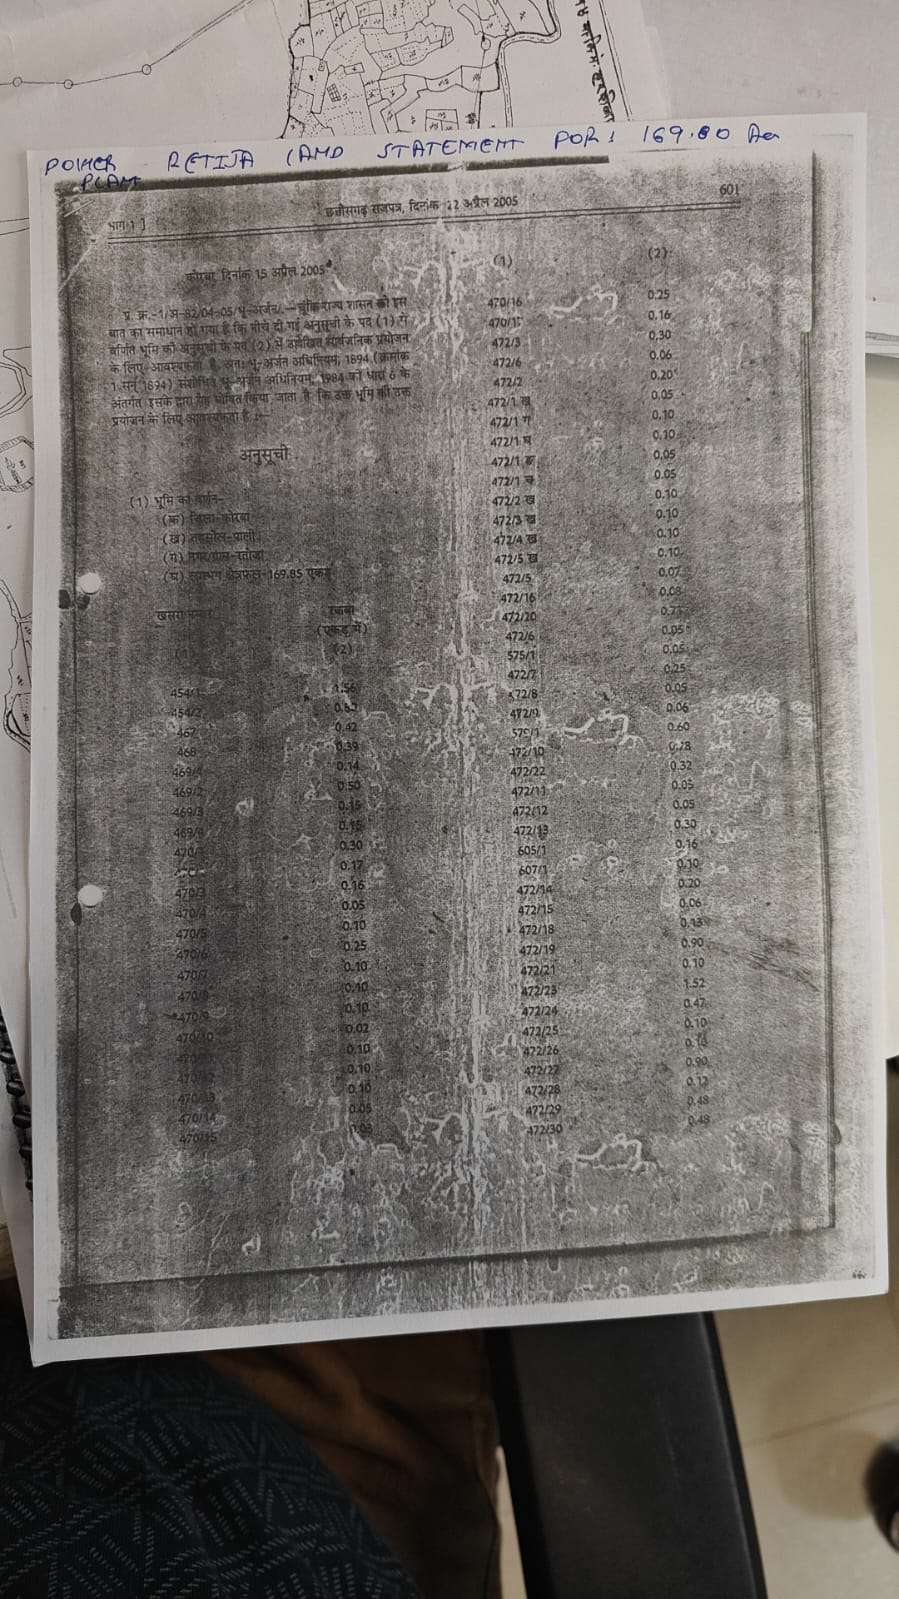 POWER RETIJA LAND STATEMENT FOR : 169.80 Aer
PLANT
भाग-1 ]
छत्तीसगढ़ राजपत्र, दिनांक 22 अप्रैल 2005
601
कोरबा, दिनांक 15 अप्रैल 2005
प्र. क्र.-1/अ-82/04-05/भू-अर्जन.—चूंकि राज्य शासन को इस
बात का समाधान हो गया है कि नीचे दी गई अनुसूची के पद (1) में
वर्णित भूमि की अनुसूची के पद (2) में उल्लेखित सार्वजनिक प्रयोजन
के लिए आवश्यकता है. अतः भू-अर्जन अधिनियम, 1894 (क्रमांक
1 सन् 1894) संशोधित भू-अर्जन अधिनियम, 1984 की धारा 6 के
अंतर्गत इसके द्वारा यह घोषित किया जाता है कि उक्त भूमि की उक्त
प्रयोजन के लिए आवश्यकता है :—
अनुसूची
(1) भूमि का वर्णन-
(क) जिला-कोरबा
(ख) तहसील-पाली
(ग) नगर/ग्राम-रतीजा
(घ) लगभग क्षेत्रफल-169.85 एकड़
खसरा नम्बर रकबा
(एकड़ में)
(2)
454/1 1.56
454/2
467 0.42
468 0.39
469/1 0.14
469/2 0.50
469/3 0.15
0.15
0.30
0.17
470/3 0.16
470/4 0.05
470/5 0.10
470/6 0.25
470/7 0.10
0.10
470/9 0.10
470/10 0.02
0.10
0.10
470/13 0.10
470/14 0.05
470/15 0.03
(1) (2)
470/16 0.25
470/17 0.16
472/3 0.30
472/6 0.06
472/2 0.20
472/1 ख 0.05
472/1 ग 0.10
472/1 घ 0.10
472/1 ङ 0.05
472/1 च 0.05
472/2 ख 0.10
472/3 ख 0.10
472/4 ख 0.10
472/5 ख 0.10
472/5 0.07
472/16 0.08
472/20
472/6 0.05
575/1 0.05
472/7 0.25
472/8 0.05
472/9 0.06
0.60
472/10
472/22 0.32
472/11 0.05
472/12 0.05
472/13 0.30
605/1 0.16
607/1 0.10
472/14 0.20
472/15 0.06
472/18
472/19 0.90
472/21 0.10
472/23 1.52
472/24 0.47
472/25 0.10
472/26
472/27 0.90
472/28 0.12
472/29 0.48
472/30 0.48